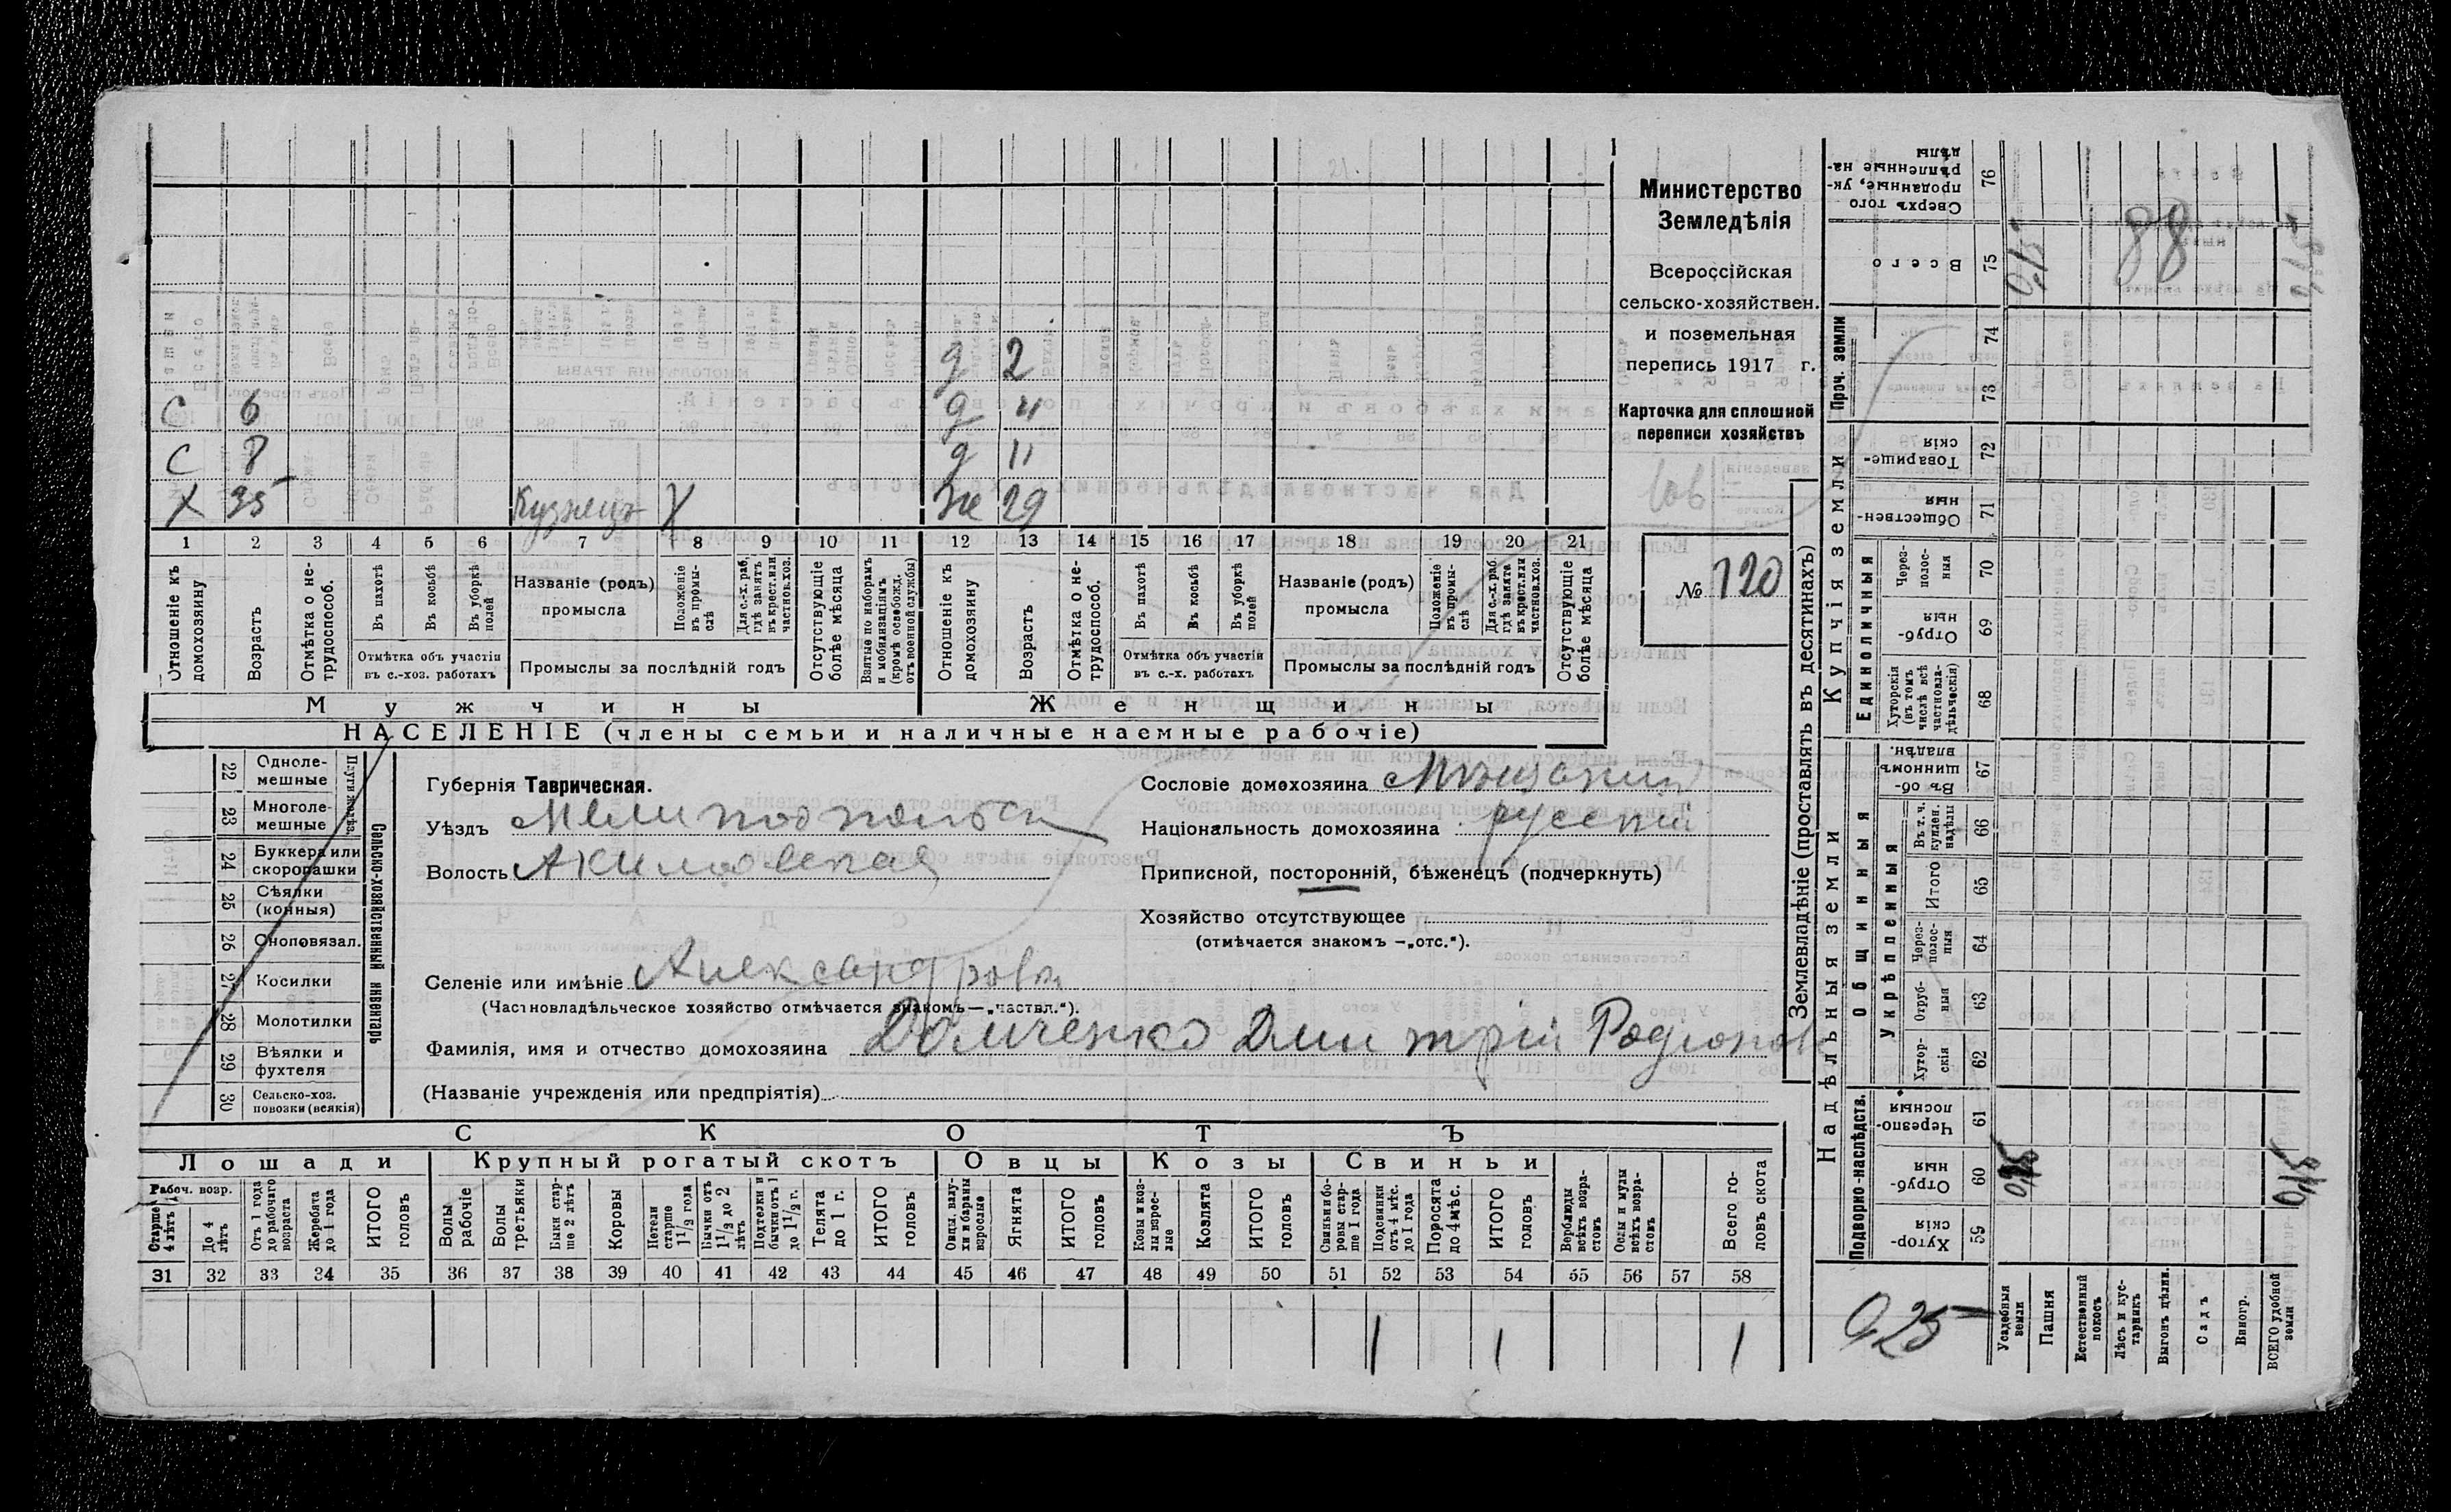 Министерство
Земледѣлія
Всероссійская
сельско-хозяйствен.
и поземельная
перепись 1917 г.
Карточка для сплошной
переписи хозяйствъ
№ 120
д 2
С 6 д 4
С 8 д 11
Х 35 Кузнецъ Х же 29
1 2 3 4 5 6 7 8 9 10 11 12 13 14 15 16 17 18 19 20 21
Отношеніе къ домохозяину
Возрастъ
Отмѣтка о не-трудоспособ.
Въ пахотѣ
Въ косьбѣ
Въ уборкѣ полей
Отмѣтка объ участіи
въ с.-хоз. работахъ
Названіе (родъ)
промысла
Положеніе въ промы-слѣ
Для с.-х. раб. гдѣ занятъ въ крест. или частнов. хоз.
Промыслы за послѣдній годъ
Отсутствующіе болѣе мѣсяца
Взятые по наборамъ и мобилизаціямъ (кромѣ освобожд. отъ военной службы)
Отношеніе къ домохозяину
Возрастъ
Отмѣтка о не-трудоспособ.
Въ пахотѣ
Въ косьбѣ
Въ уборкѣ полей
Отмѣтка объ участіи
въ с.-х. работахъ
Названіе (родъ)
промысла
Положеніе въ промы-слѣ
Для с.-х. раб. гдѣ занята въ крест. или частнов. хоз.
Промыслы за послѣдній годъ
Отсутствующіе болѣе мѣсяца
Мужчины Женщины
НАСЕЛЕНІЕ (члены семьи и наличные наемные рабочіе)
Сельско-хозяйственный инвентарь
22 Одноле-мешные
23 Многоле-мешные
24 Буккера или скоропашки
25 Сѣялки (конныя)
26 Сноповязал.
27 Косилки
28 Молотилки
29 Вѣялки и фухтеля
30 Сельско-хоз. повозки (всякія)
Губернія Таврическая.
Уѣздъ
Волость Акимовская
Селеніе или имѣніе
(Частновладѣльческое хозяйство отмѣчается знакомъ—„частвл.“).
Фамилія, имя и отчество домохозяина Домченко Дмитрій Родіонов
(Названіе учрежденія или предпріятія)
Сословіе домохозяина Мѣщанин
Національность домохозяина русскій
Приписной, посторонній, бѣженецъ (подчеркнуть)
Хозяйство отсутствующее
(отмѣчается знакомъ —„отс.“).
СКОТЪ
Лошади Крупный рогатый скотъ Овцы Козы Свиньи
Рабоч. возр.
Старше 4 лѣтъ
До 4 лѣтъ
Отъ 1 года до рабочаго возраста
Жеребята до 1 года
ИТОГО головъ
Волы рабочіе
Волы третьяки
Быки стар-ше 2 лѣтъ
Коровы
Нетели старше 1 1/2 года
Бычки отъ 1 1/2 до 2 лѣтъ
Подтелки и бычки отъ 1 до 1 1/2 г.
Телята до 1 г.
ИТОГО головъ
Овцы, валу-хи и бараны взрослые
Ягнята
ИТОГО головъ
Козы и коз-лы взрос-лые
Козлята
ИТОГО головъ
Свиньи и бо-ровы стар-ше 1 года
Подсвинки отъ 4 мѣс. до 1 года
Поросята до 4 мѣс.
ИТОГО головъ
Верблюды всѣхъ возра-стовъ
Ослы и мулы всѣхъ возра-стовъ
Всего го-ловъ скота
31 32 33 34 35 36 37 38 39 40 41 42 43 44 45 46 47 48 49 50 51 52 53 54 55 56 57 58
1 1 1
Землевладѣніе (проставлять въ десятинахъ)
Надѣльныя земли Купчія земли Проч. земли
Подворно-наслѣдств. Общинныя Единоличныя
Укрѣпленныя
Хутор-скія 59
Отруб-ныя 60
Черезпо-лосныя 61
Хутор-скія 62
Отруб-ныя 63
Через-полос-ныя 64
Итого 65
Въ т. ч. куплен. надѣлы 66
Въ об-щинномъ владѣн. 67
Хуторскія (въ томъ числѣ всѣ частновла-дѣльческія) 68
Отруб-ныя 69
Через-полос-ныя 70
Обществен-ныя 71
Товарище-скія 72
73
74
Всего 75
Сверхъ того проданные, ук-рѣпленные на-дѣлы 76
0,15
88
0,15
0,15
0,25
Усадебныя земли
Пашня
Естественный покосъ
Лѣсъ и кус-тарникъ
Выгонъ цѣлин.
Садъ
Виногр.
ВСЕГО удобной земли